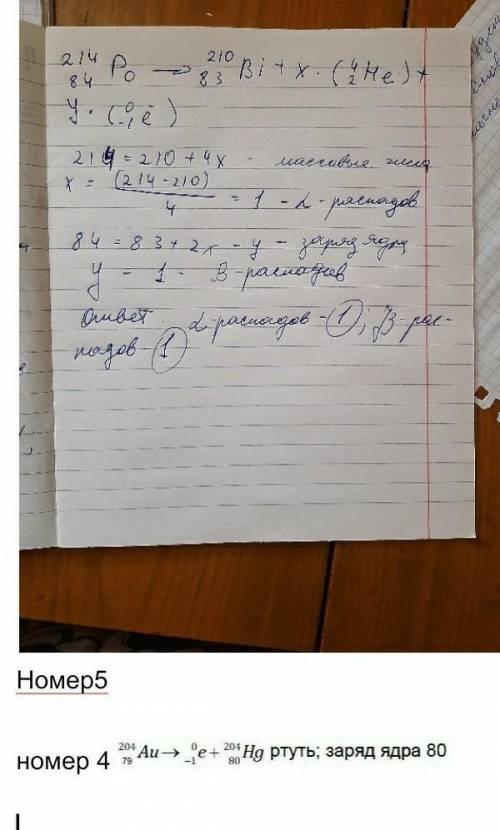 ²¹⁴₈₄Po → ²¹⁰₈₃Bi + x · (⁴₂He) +
y · (⁰₋₁e⁻)
214 = 210 + 4x - массовые числа
x = (214 - 210) / 4 = 1 - α - распадов
84 = 83 + 2x - y - заряд ядра
y = 1 - β - распадов
Ответ: α-распадов - 1; β-рас-
падов - 1
Номер5
номер 4 ²⁰⁴₇₉Au → ⁰₋₁e + ²⁰⁴₈₀Hg ртуть; заряд ядра 80